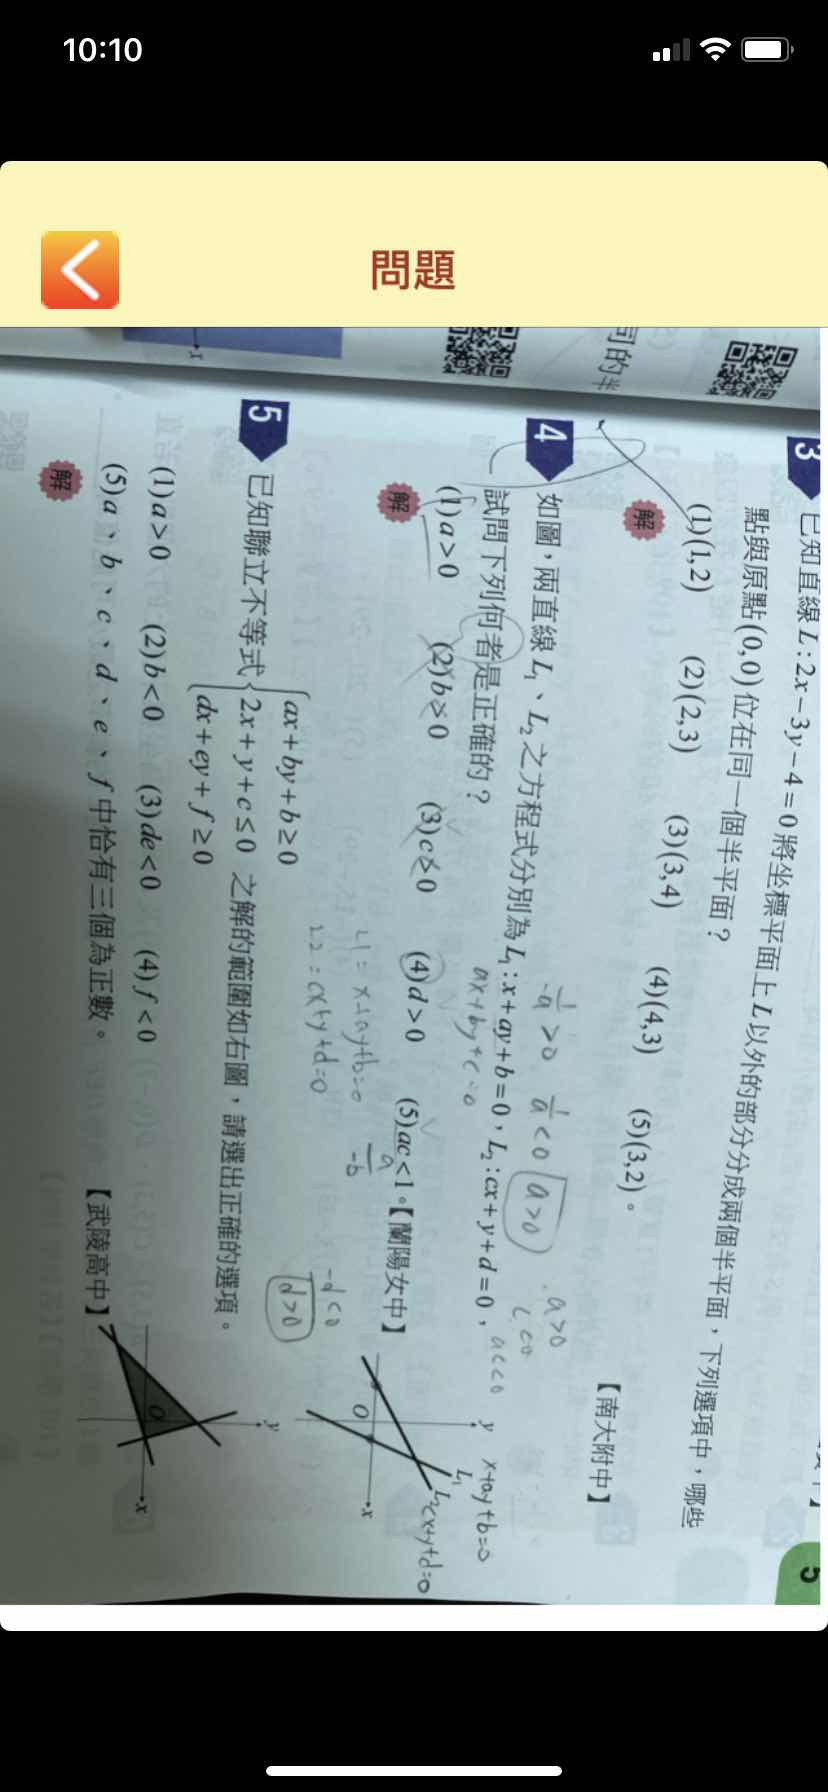 10:10
問題
司的半
5
3 已知直線 L : 2x−3y−4=0 將坐標平面上 L 以外的部分分成兩個半平面，下列選項中，哪些
點與原點(0,0)位在同一個半平面？
【南大附中】
(1)(1,2) (2)(2,3) (3)(3,4) (4)(4,3) (5)(3,2)。
解
4 如圖，兩直線 L₁、L₂之方程式分別為L₁ : x+ay+b=0，L₂ : cx+y+d=0，
試問下列何者是正確的？
(1)a>0 (2)b>0 (3)c>0 (4)d>0 (5)ac<1。【蘭陽女中】
解
1/-a >0 1/a <0 a>0
a>0
c<0
ac<0
ax+by+c=0
L1 = x+ay+b=0
L2 = cx+y+d=0
-b
a
-d<0
d>0
y
x+ay+b=0
L₁
L₂
cx+y+d=0
O
x
5 已知聯立不等式 { ax+by+b≥0
2x+y+c≤0 之解的範圍如右圖，請選出正確的選項。
dx+ey+f≥0
(1)a>0 (2)b<0 (3)de<0 (4)f<0
(5)a、b、c、d、e、f 中恰有三個為正數。 【武陵高中】
解
y
O
x
x